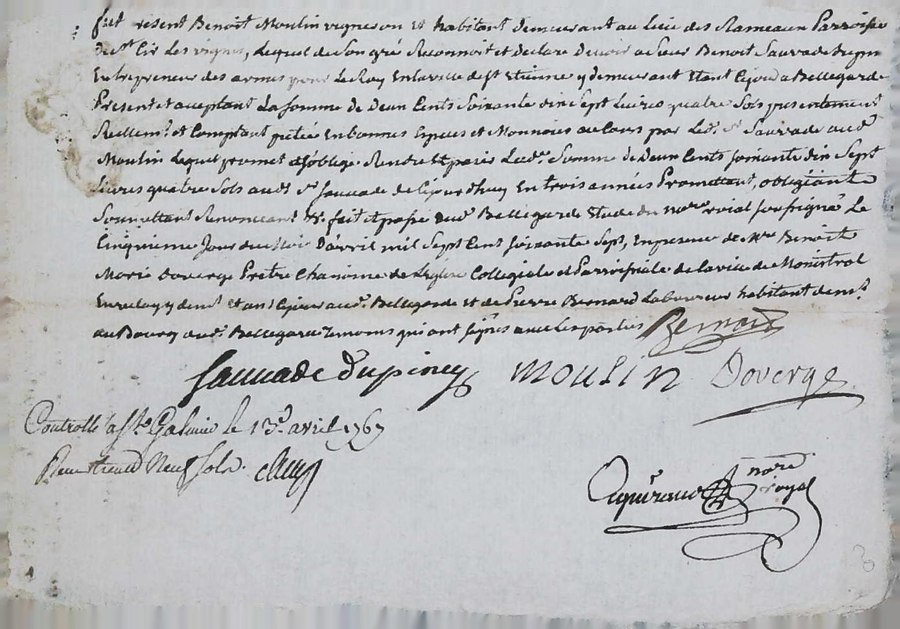 fut présent Benoit Moulin vigneron et habitant demeurant au Lieu des Rameaux Parroisse
de St Cir Les vignes, Lequel de son gré Reconnoit et declare Devoir a Sieur Benoit Sauvade Dupin
Entrepreneur des armes pour Le Roy En la ville de St Etienne y demeurant Etant Ce jourd a Bellegarde
Présent et aceptant La Somme de Deux Cents Soixante dix Sept Livres quatre Sols presentement
Reellemt. et Comptant En bonnes Espèces et Monnoies au Cours par Led. Sr. Sauvade aud.
Moulin Lequel promet et s'oblige Rendre et païer Lade. Somme de Deux Cents soixante dix Sept
Livres quatre Sols aud. Sr. Sauvade de Ce jourdhuy En trois années Promettant, obligeant
Soumettant Renonceant &c fait et passé aud. Bellegarde Etude du nore roial soussigné Le
Cinquieme Jour du Mois D'avril mil Sept Cent soixante Sept, En presence de Mre Benoit
Marie Doverge Prêtre Chanoine de L'eglise Collegiale et Parroissiale de la ville de Monistrol
En velay y demt. Etant Ce jour aud. Bellegarde et de Pierre Bernard Laboureur habitant demt.
au Bourg aud. Bellegarde Temoins qui ont signés avec Les parties Bernard
Sauvade Dupiney MOULIN Doverge
Controllé a St. Galmier le 13e. avril 1767
Reçu neuf sols.
nore
royal